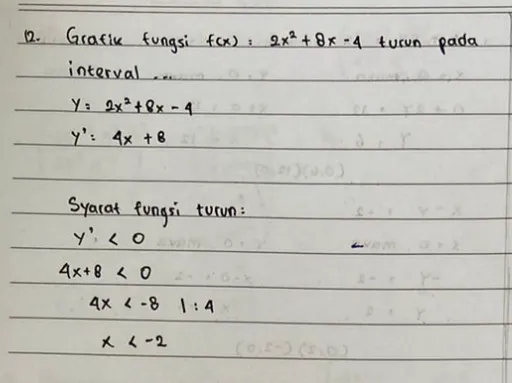 12. Grafik fungsi f(x) = 2x² + 8x - 4 turun pada
interval ...
Y = 2x² + 8x - 4
Y' = 4x + 8
Syarat fungsi turun :
Y' < 0
4x + 8 < 0
4x < -8 | : 4
x < -2